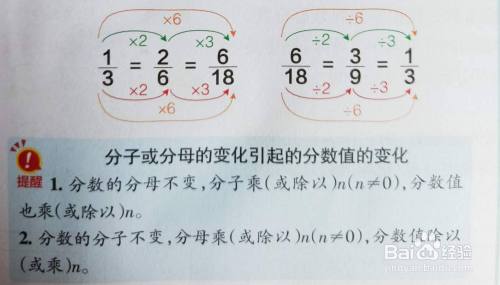 ×6 ÷6
×2 ×3 ÷2 ÷3
1/3 = 2/6 = 6/18 6/18 = 3/9 = 1/3
×2 ×3 ÷2 ÷3
×6 ÷6
分子或分母的变化引起的分数值的变化
提醒 1. 分数的分母不变,分子乘(或除以)n(n≠0),分数值
也乘(或除以)n。
2. 分数的分子不变,分母乘(或除以)n(n≠0),分数值除以
(或乘)n。
Baidu经验
jingyan.baidu.com